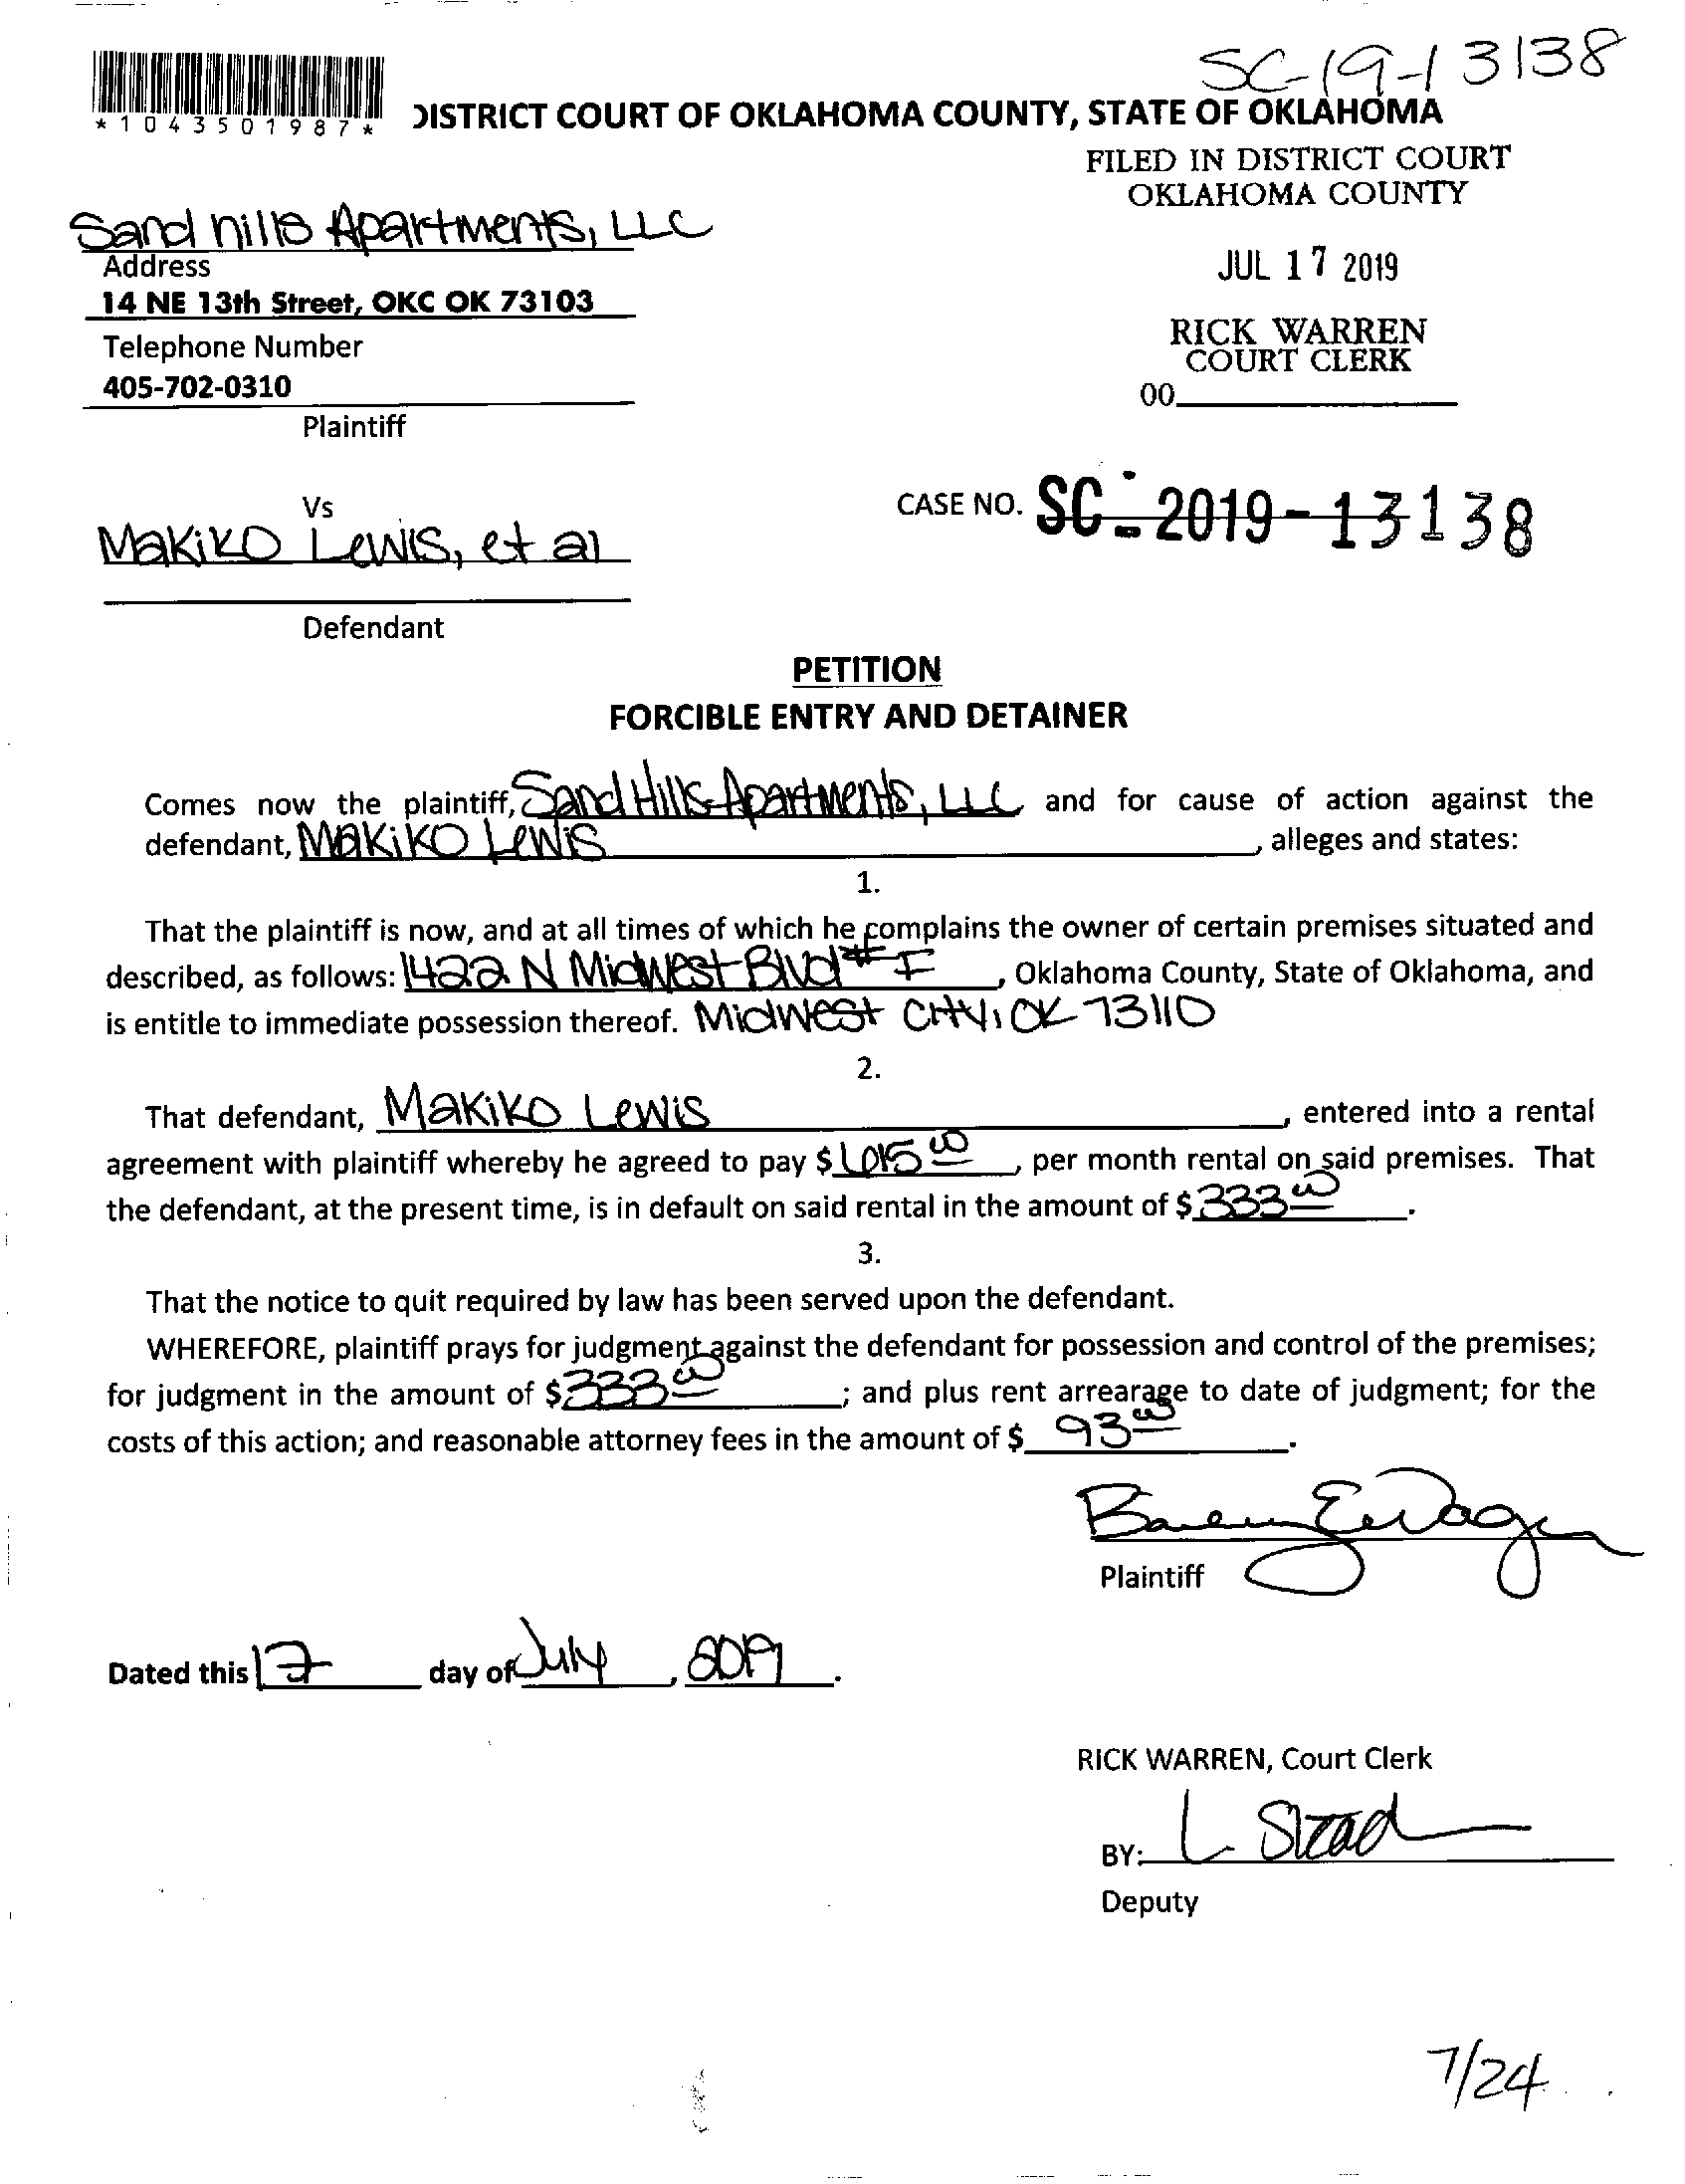 SC-19-13138
*1043501987*
DISTRICT COURT OF OKLAHOMA COUNTY, STATE OF OKLAHOMA
FILED IN DISTRICT COURT
OKLAHOMA COUNTY
Sand hills Apartments, LLC
Address
14 NE 13th Street, OKC OK 73103
JUL 17 2019
Telephone Number
405-702-0310
RICK WARREN
COURT CLERK
00
Plaintiff
Vs
Makiko Lewis, et al
CASE NO. SC-2019-13138
Defendant
PETITION
FORCIBLE ENTRY AND DETAINER
Comes now the plaintiff, Sand Hills Apartments, LLC and for cause of action against the
defendant, Makiko Lewis, alleges and states:
1.
That the plaintiff is now, and at all times of which he complains the owner of certain premises situated and
described, as follows: 1422 N Midwest Blvd # I, Oklahoma County, State of Oklahoma, and
is entitle to immediate possession thereof. Midwest City, OK 73110
2.
That defendant, Makiko Lewis, entered into a rental
agreement with plaintiff whereby he agreed to pay $1,015 00, per month rental on said premises. That
the defendant, at the present time, is in default on said rental in the amount of $333 00.
3.
That the notice to quit required by law has been served upon the defendant.
WHEREFORE, plaintiff prays for judgment against the defendant for possession and control of the premises;
for judgment in the amount of $333 00; and plus rent arrearage to date of judgment; for the
costs of this action; and reasonable attorney fees in the amount of $ 93 00.
Plaintiff
Dated this 17 day of July, 2019.
RICK WARREN, Court Clerk
BY: L Stead
Deputy
7/24